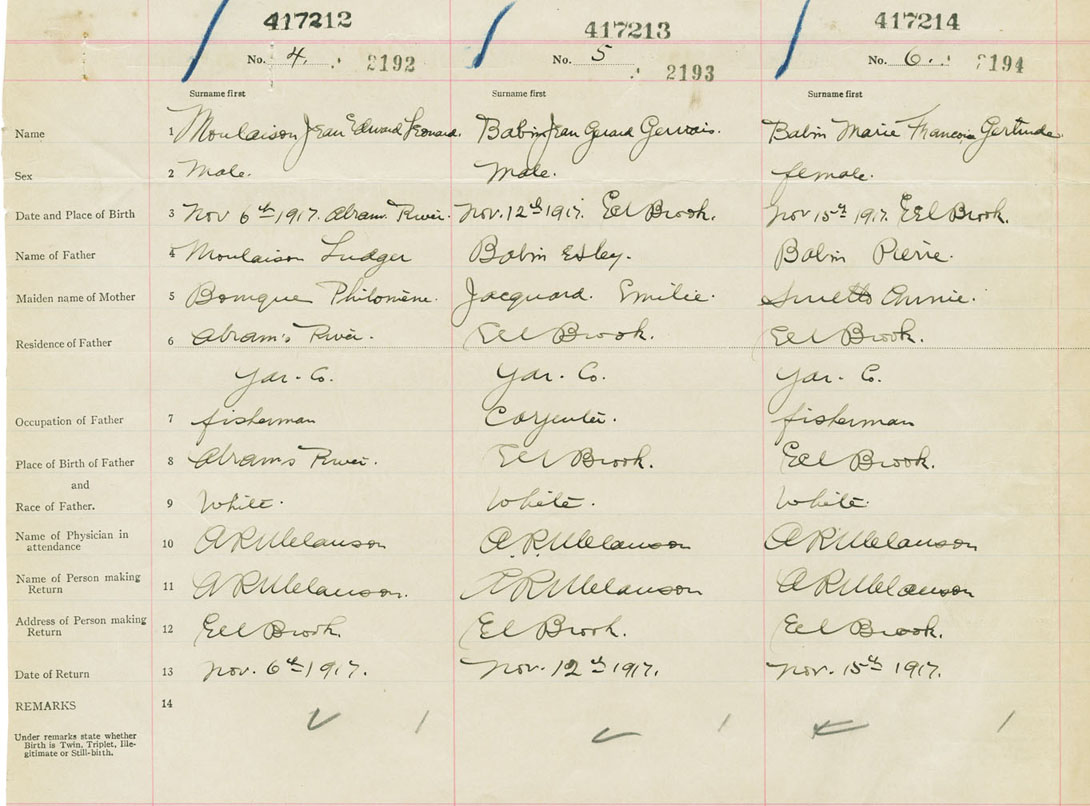 417212 417213 417214
No. 4. 2192 No. 5 2193 No. 6. 2194
Surname first Surname first Surname first
Name 1 Moulaison Jean Edward Leonard. Babin Jean Gerard Gervais. Babin Marie Francois Gertrude
Sex 2 Male. Male. female.
Date and Place of Birth 3 Nov 6th 1917. Abram River. Nov. 12th 1917. Eel Brook. Nov 15th 1917. Eel Brook.
Name of Father 4 Moulaison Ludger Babin Esley. Babin Pierre.
Maiden name of Mother 5 Bourque Philomène. Jacquard. Emilie. Annie.
Residence of Father 6 Abram's River. Eel Brook. Eel Brook.
Yar. Co. Yar. Co. Yar. Co.
Occupation of Father 7 fisherman Carpenter. fisherman
Place of Birth of Father 8 Abrams River. Eel Brook. Eel Brook.
and
Race of Father. 9 White. White. White.
Name of Physician in
attendance 10 A R Melanson A. R. Melanson A R Melanson
Name of Person making
Return 11 A R Melanson. A R Melanson A R Melanson
Address of Person making
Return 12 Eel Brook. El Brook. Eel Brook.
Date of Return 13 Nov. 6th 1917. Nov. 12th 1917. Nov. 15th 1917.
REMARKS 14
Under remarks state whether
Birth is Twin, Triplet, Ille-
gitimate or Still-birth.